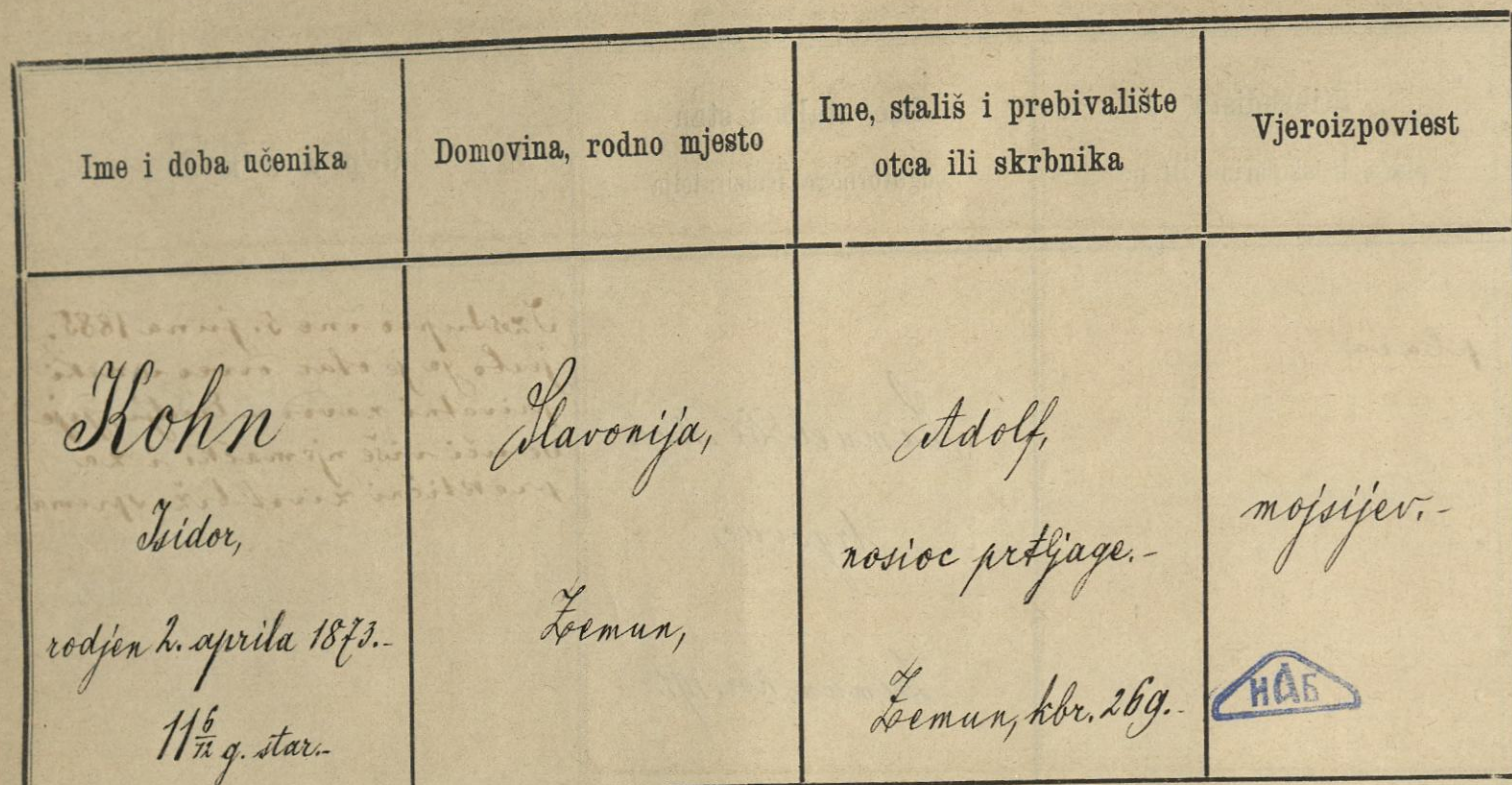 Ime i doba učenika
Domovina, rodno mjesto
Ime, stališ i prebivalište
otca ili skrbnika
Vjeroizpoviest
Kohn
Isidor,
rodjen 2. aprila 1873.-
11 6/12 g. star.-
Slavonija,
Zemun,
Adolf,
nosioc prtljage.-
Zemun, kbr. 269.-
mojsijev.-
НАБ